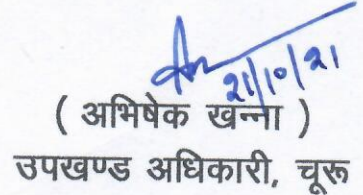 21/10/21
( अभिषेक खन्ना )
उपखण्ड अधिकारी, चूरू